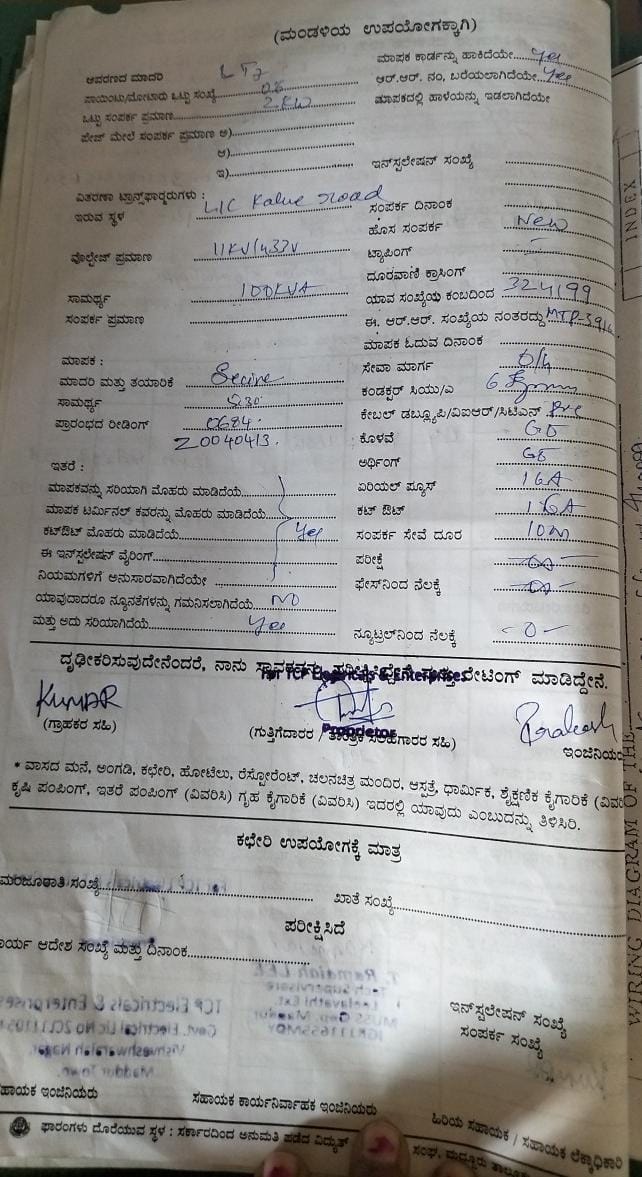 (ಮಂಡಳಿಯ ಉಪಯೋಗಕ್ಕಾಗಿ)
ಆವರಣದ ಮಾದರಿ
ಮಾಪಕ ಕಾರ್ಡನ್ನು ಹಾಕಿದೆಯೇ Yes
ಪಾಯಿಂಟು/ಮೋಟಾರು ಒಟ್ಟು ಸಂಖ್ಯೆ
ಆರ್.ಆರ್. ನಂ, ಬರೆಯಲಾಗಿದೆಯೇ Yes
ಒಟ್ಟು ಸಂಪರ್ಕ ಪ್ರಮಾಣ 2KW
ಮಾಪಕದಲ್ಲಿ ಹಾಳೆಯನ್ನು ಇಡಲಾಗಿದೆಯೇ
ಪೇಜ್ ಮೇಲೆ ಸಂಪರ್ಕ ಪ್ರಮಾಣ ಅ)
ಆ)
ಇ)
ಇನ್‌ಸ್ಟಲೇಷನ್ ಸಂಖ್ಯೆ
ವಿತರಣಾ ಟ್ರಾನ್ಸ್‌ಫಾರ್‍ಮರುಗಳು :
ಇರುವ ಸ್ಥಳ LIC Road
ಸಂಪರ್ಕ ದಿನಾಂಕ
ಹೊಸ ಸಂಪರ್ಕ New
ವೋಲ್ಟೇಜ್ ಪ್ರಮಾಣ 11KV/433V
ಟ್ಯಾಪಿಂಗ್ -
ದೂರವಾಣಿ ಕ್ರಾಸಿಂಗ್
ಸಾಮರ್ಥ್ಯ 100KVA
ಯಾವ ಸಂಖ್ಯೆಯ ಕಂಬದಿಂದ 324199
ಸಂಪರ್ಕ ಪ್ರಮಾಣ
ಈ. ಆರ್.ಆರ್. ಸಂಖ್ಯೆಯ ನಂತರದ್ದು
ಮಾಪಕ ಓದುವ ದಿನಾಂಕ
ಮಾಪಕ :
ಸೇವಾ ಮಾರ್ಗ O/H
ಮಾದರಿ ಮತ್ತು ತಯಾರಿಕೆ
ಕಂಡಕ್ಟರ್ ಸಿಯು/ಎ
ಸಾಮರ್ಥ್ಯ 5-30
ಕೇಬಲ್ ಡಬ್ಲ್ಯೂಪಿ/ವಿಐಆರ್/ಸಿಟಿಎಸ್
ಪ್ರಾರಂಭದ ರೀಡಿಂಗ್ 0684
20040413.
ಕೊಳವೆ GO
ಇತರೆ :
ಅರ್ಥಿಂಗ್
ಮಾಪಕವನ್ನು ಸರಿಯಾಗಿ ಮೊಹರು ಮಾಡಿದೆಯೆ
ಏರಿಯಲ್ ಪ್ಯೂಸ್ 16A
ಮಾಪಕ ಟರ್ಮಿನಲ್ ಕವರನ್ನು ಮೊಹರು ಮಾಡಿದೆಯೆ
ಕಟ್ ಔಟ್ 16A
ಕಟ್‌ಔಟ್ ಮೊಹರು ಮಾಡಿದೆಯೆ Yes
ಸಂಪರ್ಕ ಸೇವೆ ದೂರ 10m
ಈ ಇನ್‌ಸ್ಟಲೇಷನ್ ವೈರಿಂಗ್
ಪರೀಕ್ಷೆ
ನಿಯಮಗಳಿಗೆ ಅನುಸಾರವಾಗಿದೆಯೇ
ಫೇಸ್‌ನಿಂದ ನೆಲಕ್ಕೆ
ಯಾವುದಾದರೂ ನ್ಯೂನತೆಗಳನ್ನು ಗಮನಿಸಲಾಗಿದೆಯೆ NO
ಮತ್ತು ಅದು ಸರಿಯಾಗಿದೆಯೆ Yes
ನ್ಯೂಟ್ರಲ್‌ನಿಂದ ನೆಲಕ್ಕೆ -0-
ದೃಢೀಕರಿಸುವುದೇನೆಂದರೆ, ನಾನು ಸ್ಥಾವರವನ್ನು ಪರೀಕ್ಷಿಸಿದ್ದೇನೆ ಮತ್ತು ರೇಟಿಂಗ್ ಮಾಡಿದ್ದೇನೆ.
For TCP Electricals & Enterprises
KUMAR
Prakash
Proprietor
(ಗ್ರಾಹಕರ ಸಹಿ)
(ಗುತ್ತಿಗೆದಾರರ / ತಾಂತ್ರಿಕ ಸಲಹಾಗಾರರ ಸಹಿ)
ಇಂಜಿನಿಯರ
* ವಾಸದ ಮನೆ, ಅಂಗಡಿ, ಕಛೇರಿ, ಹೋಟೆಲು, ರೆಸ್ಟೋರೆಂಟ್, ಚಲನಚಿತ್ರ ಮಂದಿರ, ಆಸ್ಪತ್ರೆ, ಧಾರ್ಮಿಕ, ಶೈಕ್ಷಣಿಕ ಕೈಗಾರಿಕೆ (ವಿವರ
ಕೃಷಿ ಪಂಪಿಂಗ್, ಇತರೆ ಪಂಪಿಂಗ್ (ವಿವರಿಸಿ) ಗೃಹ ಕೈಗಾರಿಕೆ (ವಿವರಿಸಿ) ಇದರಲ್ಲಿ ಯಾವುದು ಎಂಬುದನ್ನು ತಿಳಿಸಿರಿ.
ಕಛೇರಿ ಉಪಯೋಗಕ್ಕೆ ಮಾತ್ರ
ಮಂಜೂರಾತಿ ಸಂಖ್ಯೆ
ಖಾತೆ ಸಂಖ್ಯೆ
ಪರೀಕ್ಷಿಸಿದೆ
ಾರ್ಯ ಆದೇಶ ಸಂಖ್ಯೆ ಮತ್ತು ದಿನಾಂಕ
ಇನ್‌ಸ್ಟಲೇಷನ್ ಸಂಖ್ಯೆ
ಸಂಪರ್ಕ ಸಂಖ್ಯೆ
ಸಹಾಯಕ ಇಂಜಿನಿಯರು
ಸಹಾಯಕ ಕಾರ್ಯನಿರ್ವಾಹಕ ಇಂಜಿನಿಯರು
ಹಿರಿಯ ಸಹಾಯಕ / ಸಹಾಯಕ ಲೆಕ್ಕಾಧಿಕಾರಿ
ಫಾರಂಗಳು ದೊರೆಯುವ ಸ್ಥಳ : ಸರ್ಕಾರದಿಂದ ಅನುಮತಿ ಪಡೆದ ವಿದ್ಯುತ್
ಸಂಘ, ಮದ್ದೂರು ತಾಲೂ
INDEX
WIRING DIAGRAM OF THE